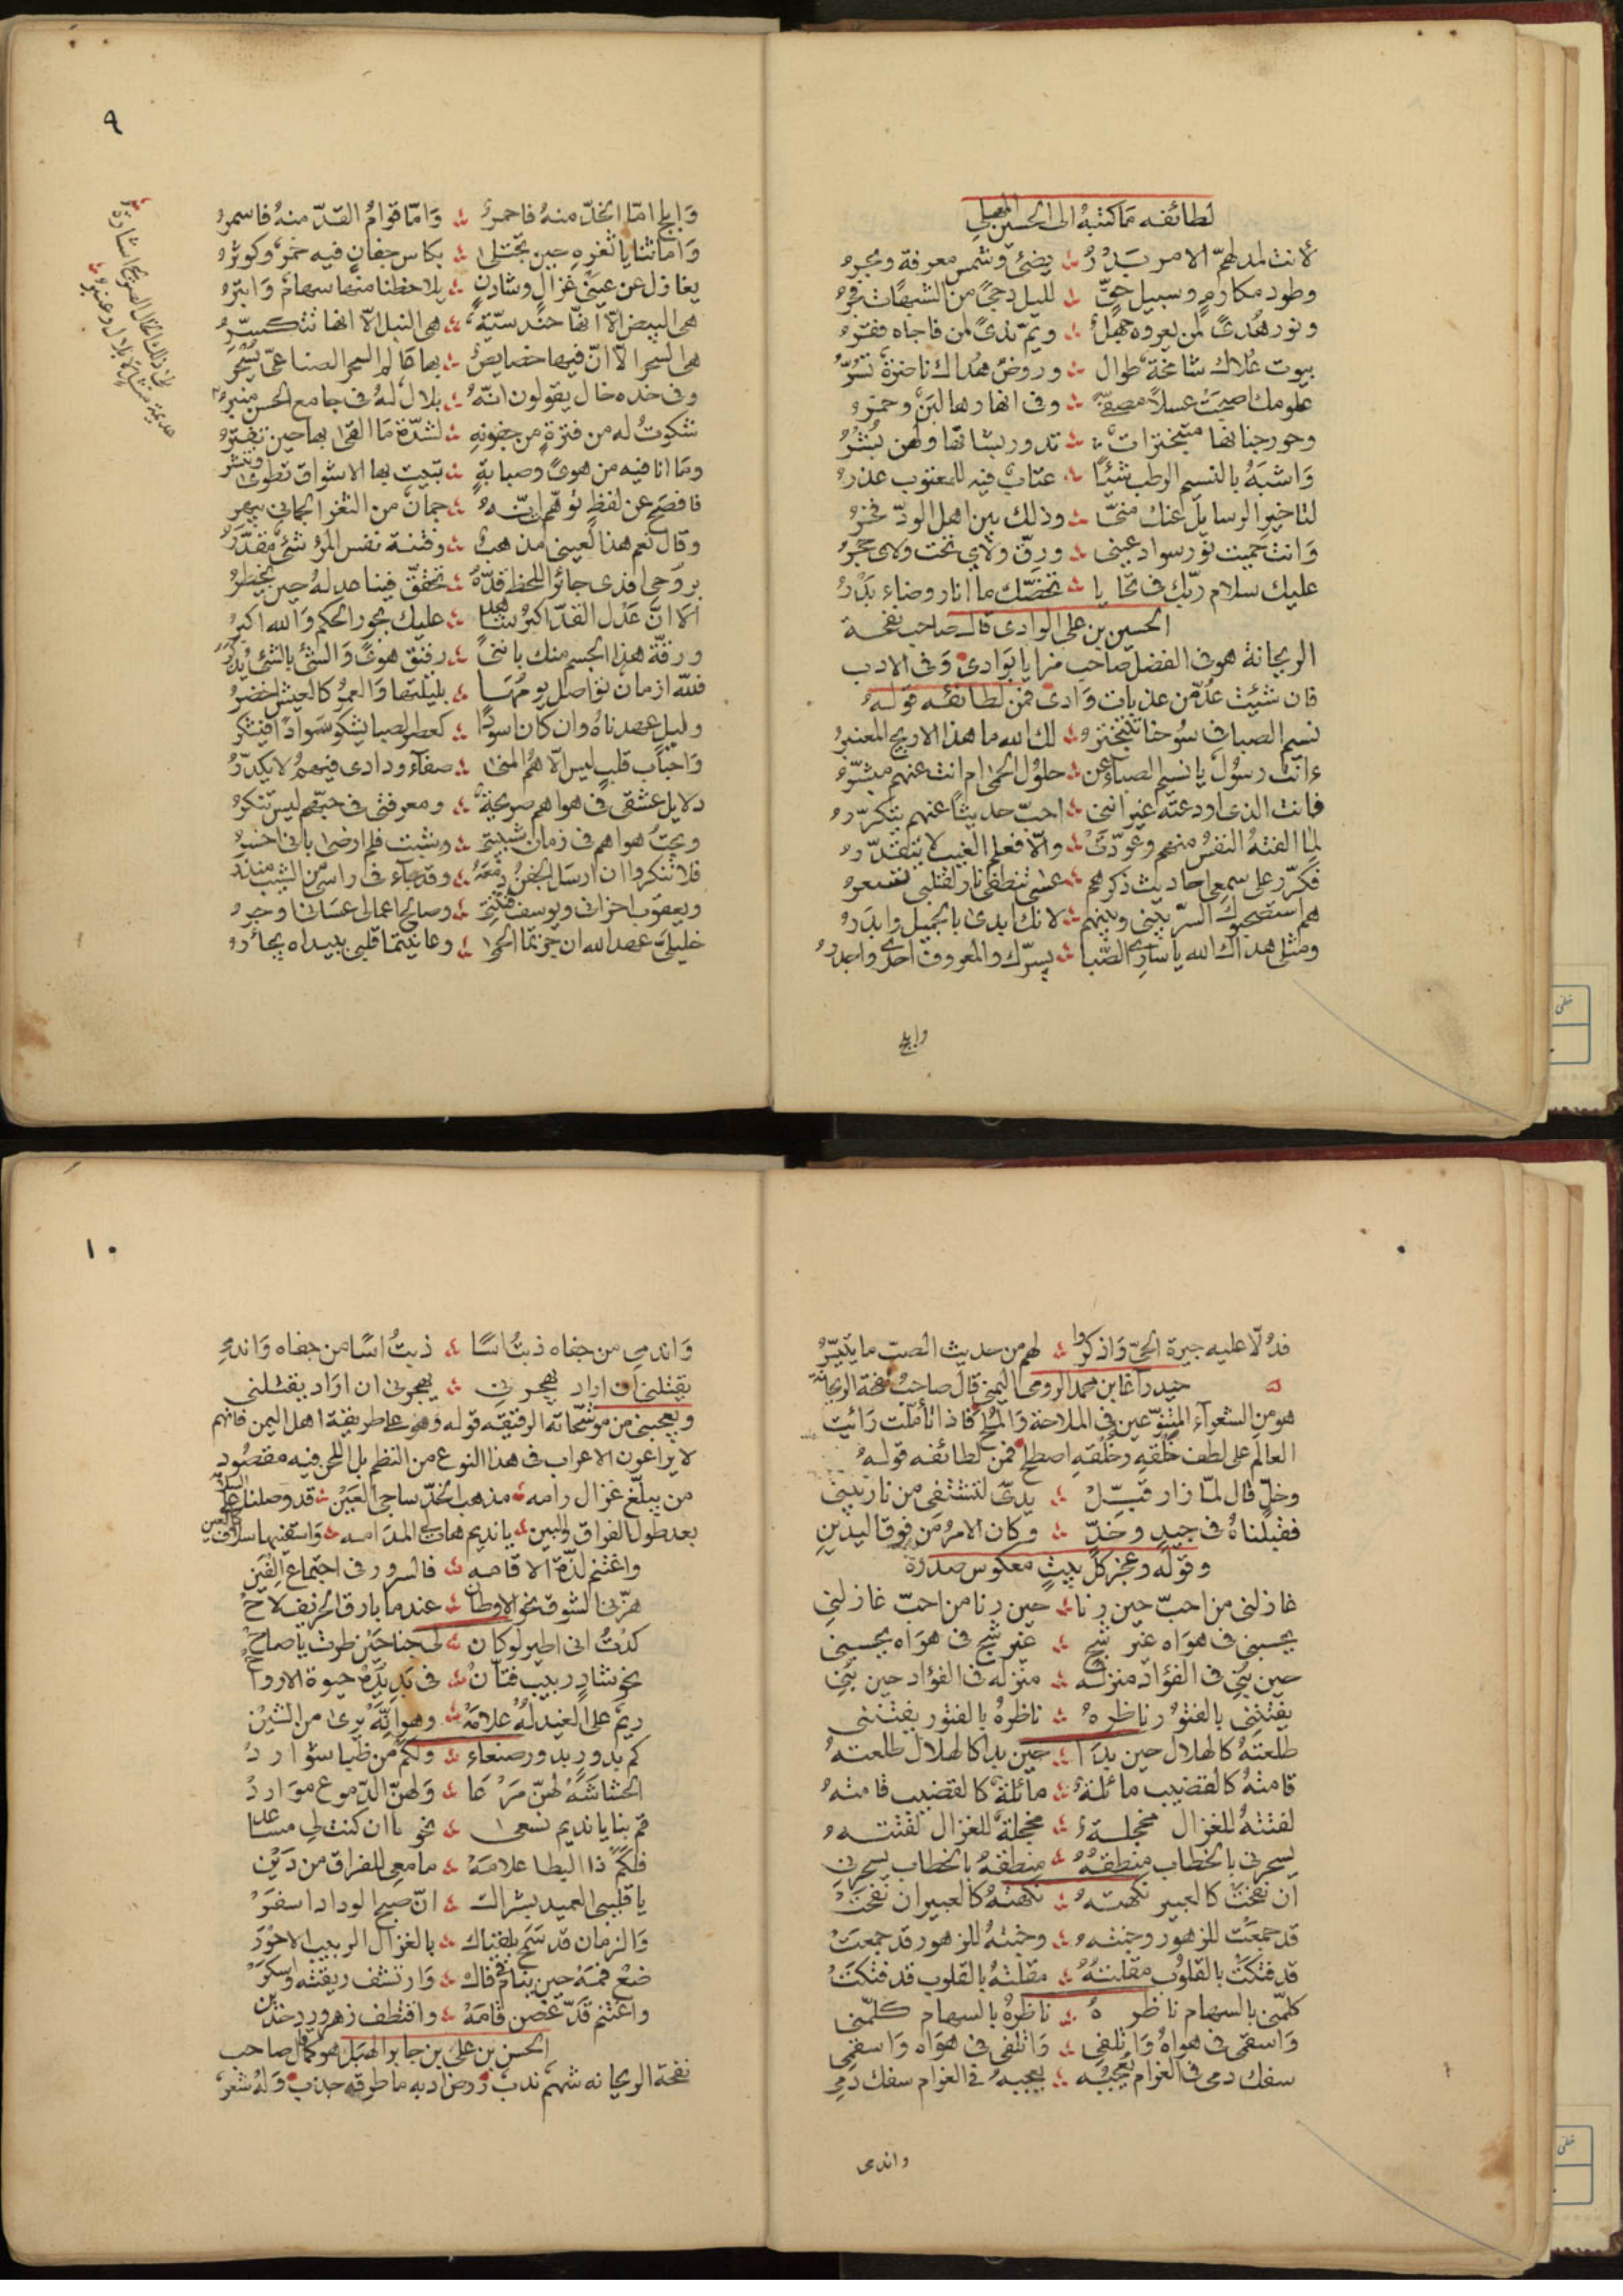 لطائفه مما كتبه الى الحسين المهلى
لأنت لمدلهمّ الامر بَدْرُ يضئ وشمس معرفة وبحره
وطود مكارم وسبيل حجىّ لليل دجىً من الشبهات فجره
ونور هُدىً لمن يعروه جهلُ ويمّ ندىً لمن فاجاه فقره
بيوت عُلاك شامخة طوال وروض هُداك ناضرة تسُرّ
علومك اصبحت عسلاً مصفىّ وفى انهارها لبن وخمره
وحور جنانها متبخترات تدور بشانها ولهن نُشْرُ
وَاشبَهُ بالنسيم الرطب شيئًا عتابٌ فيه للمعتوب عذره
لتاخير الرسايل عنك منىّ وذلك بين اهل الودّ فخره
وَانت حميت نور سواد عينى ورِقّ ولاى تحت ولاى حجره
عليك سلام ربّك فى تحايا تخصّك ما انار وضاء بَدْرُ
الحسين بن على الوادى قال صاحب نفحة
الريحانة هو فى الفضل صاحب مزايا بوادى وفى الادب
فان شئيت عُدّ من عذبات وَادى فمن لطائفه قوله
نسيم الصبا فى سُوحنا تتبختره لك الله ما هذا الاريج المعنبره
ءانت رسُول يا نسيم الصبا عن حلول الحمى ام انت عنهم مبشّره
فانت الذى اودعته غير اننى احبّ حديثاً عنهم يتكرّره
لِما الفته النفس منهم وعُوّدتْ والّا فعلم الغيب لا يتقدّره
فكرّر على سمعى احاديث ذكرهم عسى تنطفى نار لقلبى تسعره
هم استصحبوك السرّ بينى وبينهم لانك ابدى بالجميل وابدره
ومثلى هداك الله يا سارى الصّبا يسرّك والمعروف احرى واجدره
وابلج
٩
وَابلج امّا الخدّ منه فاحمرُ وَامّا قوامُ القدّ منه فاسمره
وَاما ثنايا ثغره حين تجتلى بكاس جفان فيه خمر وكوثره
يغازل عن عينى غزال وشادن يلاحظنا منها سهام وَابتره
هى البيض الّا انها حندسيّة هى النبل الّا انها تتكسّره
هى السحر الّا انّ فيها خصايص بها عالم السحر الصناعىّ يُسْحَرُ
وفى خده خال يقولون انّه بلال له فى جامع الحسن منبره
شكوتُ له من فترة من جفونه لشدّة ما القى بها حين تفتره
وما انا فيه من هوىً وصبابة تبيت بها الاشواق تطوى وتنشر
فافصح عن لفظ توهّم انّه جمان من الثغر الجمانى يبهر
وقال نعم هذا لعينى مذهبُ وفتنة نفس المرء شئ مقدّرُ
بروحى افدى جائر اللحظ قدّهُ تحقّق فينا عدله حين يخطرُ
ألا انّ عَدْل القدّ اكبر شاهد عليك بجور الحكم وَالله اكبرُ
ورقّة هذا الجسم منك بانّنى رقيق هوىً وَالشئ بالشئ يُذْكرُ
فلله ازمان تواصل يومها بليلتها وَالعمرُ كالعيش اخضرُ
وليل عهدناه وان كان اسودًا كعطر الصبا يشكو سَوادًا فيشكر
وَاحباب قلب ليس الّا هُمُ المنى صفآء ودادى فيهمُ لا يكدّرُ
دلايل عشقى فى هواهم صريحة ومعرفتى فى حبّهم ليس تنكره
وبحتُ هواهم فى زمان شبيبتى وشبت فلم ارضى بانى اخسره
فلا تنكروا ان ارسَل الجفن دمعَهُ وقد جآء فى راسى من الشيب منذر
ويعقوب احزانى ويوسف فتنتى وصالح اعمالى عسَانى اوجره
خليلىّ عهد الله ان جزتما الحمى وعاينتما قلبى ببيداه يجأره
فدُلّا عليه جيرة الحىّ وَاذكروا لهم من حديث الصبّ ما يتيسّرُ
حيدر آغا بن محمد الرومى اليمنى قال صاحب نفحة الريحانة
هو من الشعرآء المبتدعين فى الملاحة وَالمُلح فاذا تأمّلت رَائيت
العالم على لطف خَلقه وخُلُقه اصطلح فمن لطائفه قوله
وخلّ قال لمّا زار قبّلْ يدىّ لتشتفى من نار بينى
فقبلناهُ فى جيد وخدّ وكان الامرُ من فوق اليدين
وقوله وعجز كلّ بيت معكوس صدره
غازلنى من احبّ حين رنا حين رنا من احبّ غازلنى
يحسبنى فى هوَاه غير شج غير شج فى هوَاه يحسبنى
حين بُنِى فى الفؤاد منزله منزله فى الفؤاد حين بُنِى
يفتننى بالفتور ناظره ناظرهُ بالفتور يفتننى
طلعتهُ كالهلال حين بدَا حين بدا كالهلال طلعتهُ
قامتهُ كالقضيب مائلة مائلة كالقضيب قامته
لفتتهُ للغزال مخجلة مخجلة للغزال لفتته
يسحرنى بالخطاب منطقهُ منطقهُ بالخطاب يسحرنى
ان نفحَتْ كالعبير نكهته نكهتهُ كالعبير ان نفحَتْ
قد جمعَتْ للزهور وجنته وجنتهُ للزهور قد جمعَتْ
قد فتكَتْ بالقلوب مقلته مقلتهُ بالقلوب قد فتكَتْ
كلمّنى بالسهام ناظره ناظرهُ بالسهام كلمّنى
وَاسقمى فى هواهُ وَاتلفى وَاتلفى فى هوَاه وَاسقمى
سفك دمى فى الغرام يعجبه يعجبه فى الغرام سفك دمى
واندمى
١٠
وَاندمى من جفاه ذبتُ اسًا ذبتُ اسًا من جفاه وَاندمى
يقتلنى ان اراد يهجرنى يهجرنى ان ارَاد يقتلنى
ويعجبنى من موشّحاته الرقيقه قوله وهو على طريقة اهل اليمن فانهم
لا يراعون الاعراب فى هذا النوع من النظم بل اللحن فيه مقصُود
من يبلّغ غزال رامه مذهب الخدّ ساجى العَيْن قد وصلنا على السلامة
بعد طول الفراق والبين يا نديم هات لى المدامه وَاسقنيها سلاف
واغتنم لذّة الاقامه فالسرور فى اجتماع الفَين
هزّنى الشوق نحو الاوطان عندما بارق الحزيف لاحْ
كدْتُ انى اطير لو كان لى جناحَيْن طرت يا صاحْ
نحو شادن ربيب فتّان فى يَدِ يَدهْ حيوة الارواحْ
ريم على الغيد له علامهْ وهو انّهْ برىْ من الشَيْن
كم بدور بدور صنعاء ولكم من ظبا شواردْ
الحشاشَهْ لهنّ مَرْعَا وَلهنّ الدّموع موَاردْ
قم بنا يا نديم نسعى نحوها ان كنت لى مساعد
فلكم ذا البطا علامَهْ ما معى للفراق من دَيْن
يا قلبى العميد بشراك انّ صبح الوداد اسفَرْ
وَالزمان قد سَمح بلقياك بالغزال الربيب الاحوَرْ
ضع فمهْ حين ينام فى فاك وَارتشف ريقته واسكَرْ
واغتنم قدّ غصن قامَهْ واقتطف زهر ورد خدّين
الحسن بن على بن جابر الهبَل هو كما قال صاحب
نفحة الريحانه شهم ندب روض ادبه ما طرقه جدب وَلهُ شعر